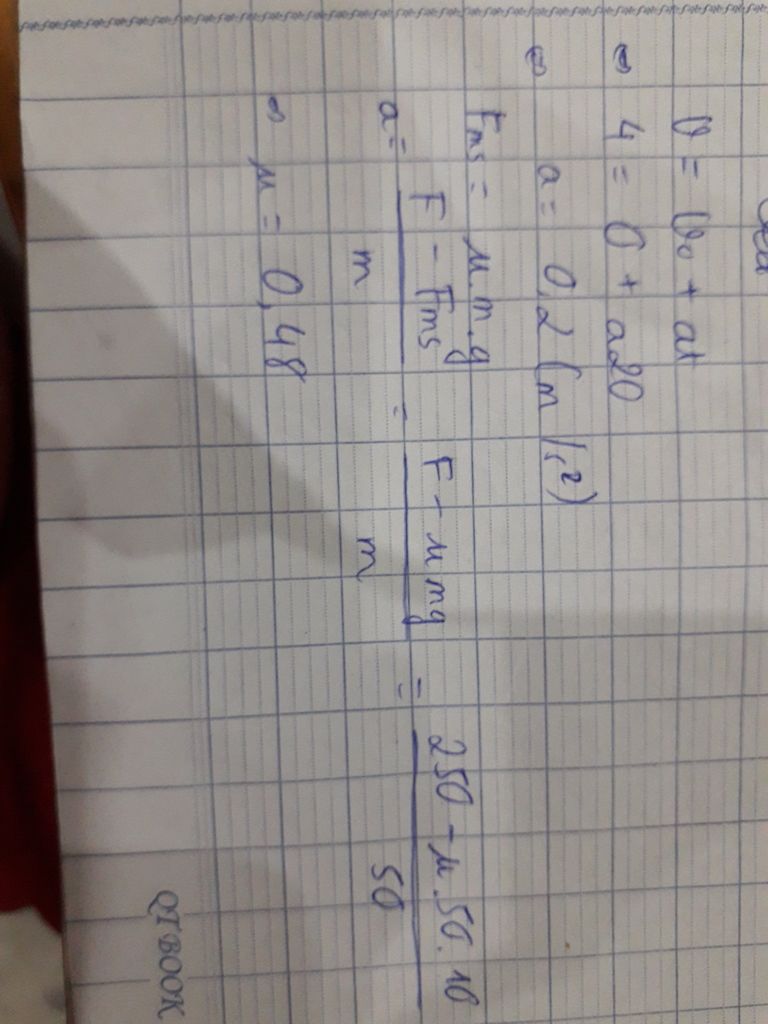 v = v₀ + at
⇔ 4 = 0 + a20
⇔ a = 0,2 (m/s²)
Fms = μ.m.g
a = (F - Fms)/m = (F - μmg)/m = (250 - μ.50.10)/50
⇔ μ = 0,48
QTBOOK